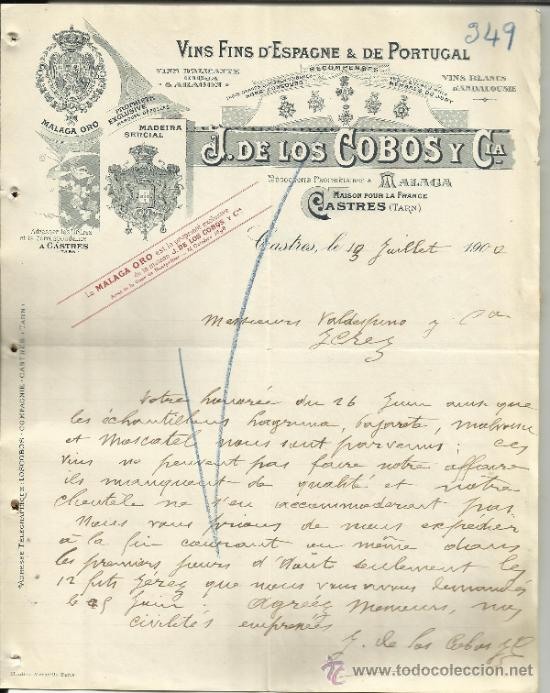 349
VINS FINS D'ESPAGNE & DE PORTUGAL
VINS D'ALICANTE
& ARAGON
RÉCOMPENSES
HORS CONCOURS
MEMBRE DU JURY
VINS BLANCS
D'ANDALOUSIE
PROPRIÉTÉ
EXCLUSIVE
MARQUES DÉPOSÉES
MALAGA ORO
MADEIRA
SERCIAL
J. DE LOS COBOS Y CIA
Négociants Propriétaires à MALAGA
MAISON POUR LA FRANCE
CASTRES (TARN)
Adresser les lettres
et la correspondance
A CASTRES
TARN
La MALAGA ORO est la propriété exclusive
de la maison J. DE LOS COBOS Y Cia
Arrêt de la Cour de Montpellier - Octobre 1898
Castres, le 19 Juillet 1900
Messieurs Valdespino y Cia
Jerez
Votre honorée du 26 Juin ainsi que
les échantillons lagrima, Pajarete, malvoisie
et Moscatel nous sont parvenus; ces
vins ne peuvent pas faire notre affaire
ils manquent de qualité et notre
clientèle ne s'en accommoderait pas
Nous vous prions de nous expédier
à la fin courant ou même dans
les premiers jours d'Août seulement les
12 futs Jérez que nous vous avons demandés
le 25 Juin. Agréez Messieurs, nos
civilités empressées
J. de los Cobos y C
ADRESSE TÉLÉGRAPHIQUE: LOSCOBOS - COMPAGNIE - CASTRES (TARN)
todocoleccion
www.todocoleccion.net